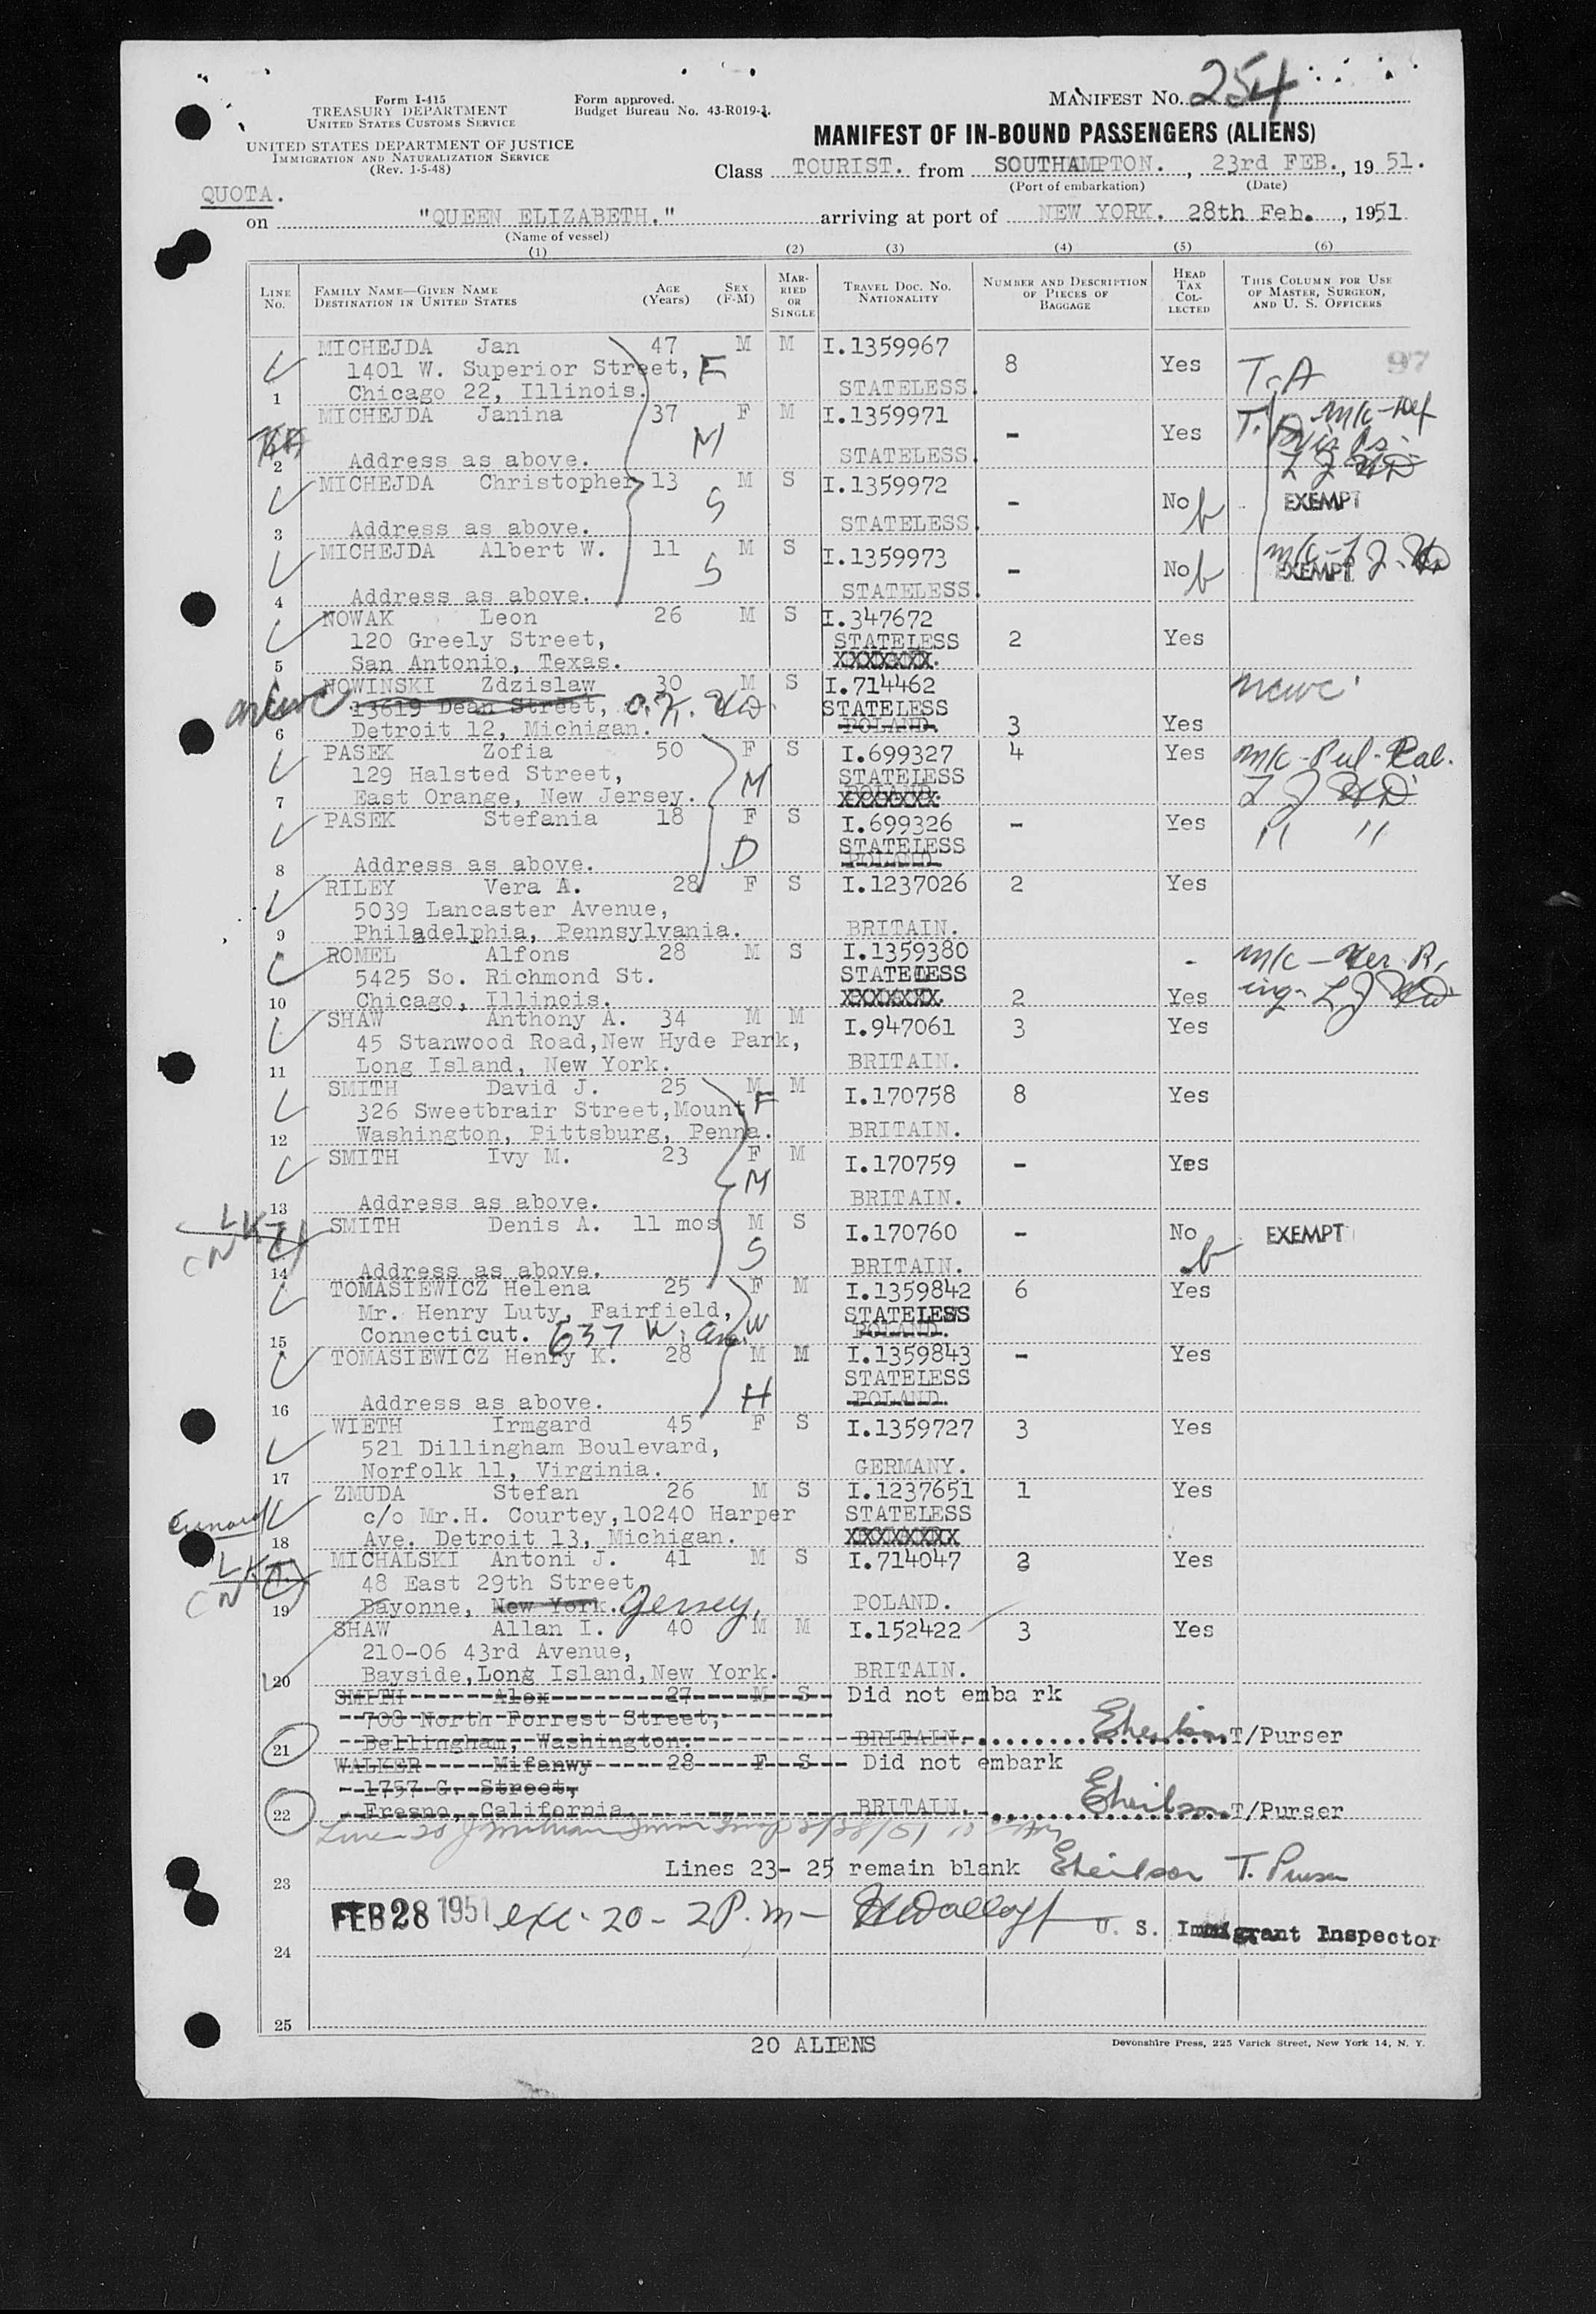 MANIFEST NO. 254
Form I-415
TREASURY DEPARTMENT
UNITED STATES CUSTOMS SERVICE
Form approved.
Budget Bureau No. 43-R019-1.
UNITED STATES DEPARTMENT OF JUSTICE
IMMIGRATION AND NATURALIZATION SERVICE
(Rev. 1-5-48)
MANIFEST OF IN-BOUND PASSENGERS (ALIENS)
Class TOURIST. from SOUTHAMPTON., 23rd FEB., 1951.
(Port of embarkation) (Date)
QUOTA.
on "QUEEN ELIZABETH." arriving at port of NEW YORK. 28th Feb., 1951
(Name of vessel)
(1) (2) (3) (4) (5) (6)
LINE No. FAMILY NAME—GIVEN NAME DESTINATION IN UNITED STATES AGE (Years) SEX (F-M) MARRIED OR SINGLE TRAVEL DOC. NO. NATIONALITY NUMBER AND DESCRIPTION OF PIECES OF BAGGAGE HEAD TAX COLLECTED THIS COLUMN FOR USE OF MASTER, SURGEON, AND U. S. OFFICERS
MICHEJDA Jan 47 M M I.1359967 8 Yes T.A 97
1401 W. Superior Street, F
1 Chicago 22, Illinois. STATELESS.
MICHEJDA Janina 37 F M I.1359971 - Yes
M
2 Address as above. STATELESS.
MICHEJDA Christopher 13 M S I.1359972 - No EXEMPT
S
3 Address as above. STATELESS.
MICHEJDA Albert W. 11 M S I.1359973 - No EXEMPT
S
4 Address as above. STATELESS.
NOWAK Leon 26 M S I.347672
120 Greely Street, STATELESS 2 Yes
5 San Antonio, Texas. XXXXXXX.
NOWINSKI Zdzislaw 30 M S I.714462
13619 Dean Street, STATELESS
6 Detroit 12, Michigan. POLAND. 3 Yes
PASEK Zofia 50 F S I.699327 4 Yes
129 Halsted Street, M STATELESS
7 East Orange, New Jersey. POLAND.
PASEK Stefania 18 F S I.699326 - Yes " "
D STATELESS
8 Address as above. POLAND.
RILEY Vera A. 28 F S I.1237026 2 Yes
5039 Lancaster Avenue,
9 Philadelphia, Pennsylvania. BRITAIN.
ROMEL Alfons 28 M S I.1359380 -
5425 So. Richmond St. STATELESS
10 Chicago, Illinois. XXXXXXX. 2 Yes
SHAW Anthony A. 34 M M I.947061 3 Yes
45 Stanwood Road,New Hyde Park,
11 Long Island, New York. BRITAIN.
SMITH David J. 25 M M I.170758 8 Yes
326 Sweetbrair Street,Mount F
12 Washington, Pittsburg, Penna. BRITAIN.
SMITH Ivy M. 23 F M I.170759 - Yes
M
13 Address as above. BRITAIN.
SMITH Denis A. 11 mos M S I.170760 - No EXEMPT
S
14 Address as above. BRITAIN.
TOMASIEWICZ Helena 25 F M I.1359842 6 Yes
Mr. Henry Luty, Fairfield, W STATELESS
15 Connecticut. 637 POLAND.
TOMASIEWICZ Henry K. 28 M M I.1359843 - Yes
STATELESS
16 Address as above. H POLAND.
WIETH Irmgard 45 F S I.1359727 3 Yes
521 Dillingham Boulevard,
17 Norfolk 11, Virginia. GERMANY.
ZMUDA Stefan 26 M S I.1237651 1 Yes
Cunard c/o Mr.H. Courtey,10240 Harper STATELESS
18 Ave. Detroit 13, Michigan. XXXXXXXX
MICHALSKI Antoni J. 41 M S I.714047 3 Yes
48 East 29th Street,
19 Bayonne, New York. Jersey, POLAND.
SHAW Allan I. 40 M M I.152422 3 Yes
210-06 43rd Avenue,
20 Bayside,Long Island,New York. BRITAIN.
SMITH Alex 27 M S Did not emba rk
708 North Forrest Street,
21 Bellingham, Washington. BRITAIN. T/Purser
WALKER Mifanwy 28 F S Did not embark
1757 G. Street,
22 Fresno, California. BRITAIN. T/Purser
Lines 23- 25 remain blank T. Purser
23
FEB 28 1951 exc. 20 - 2 P.m - U. S. Immigrant Inspector
24
25
20 ALIENS
Devonshire Press, 225 Varick Street, New York 14, N. Y.